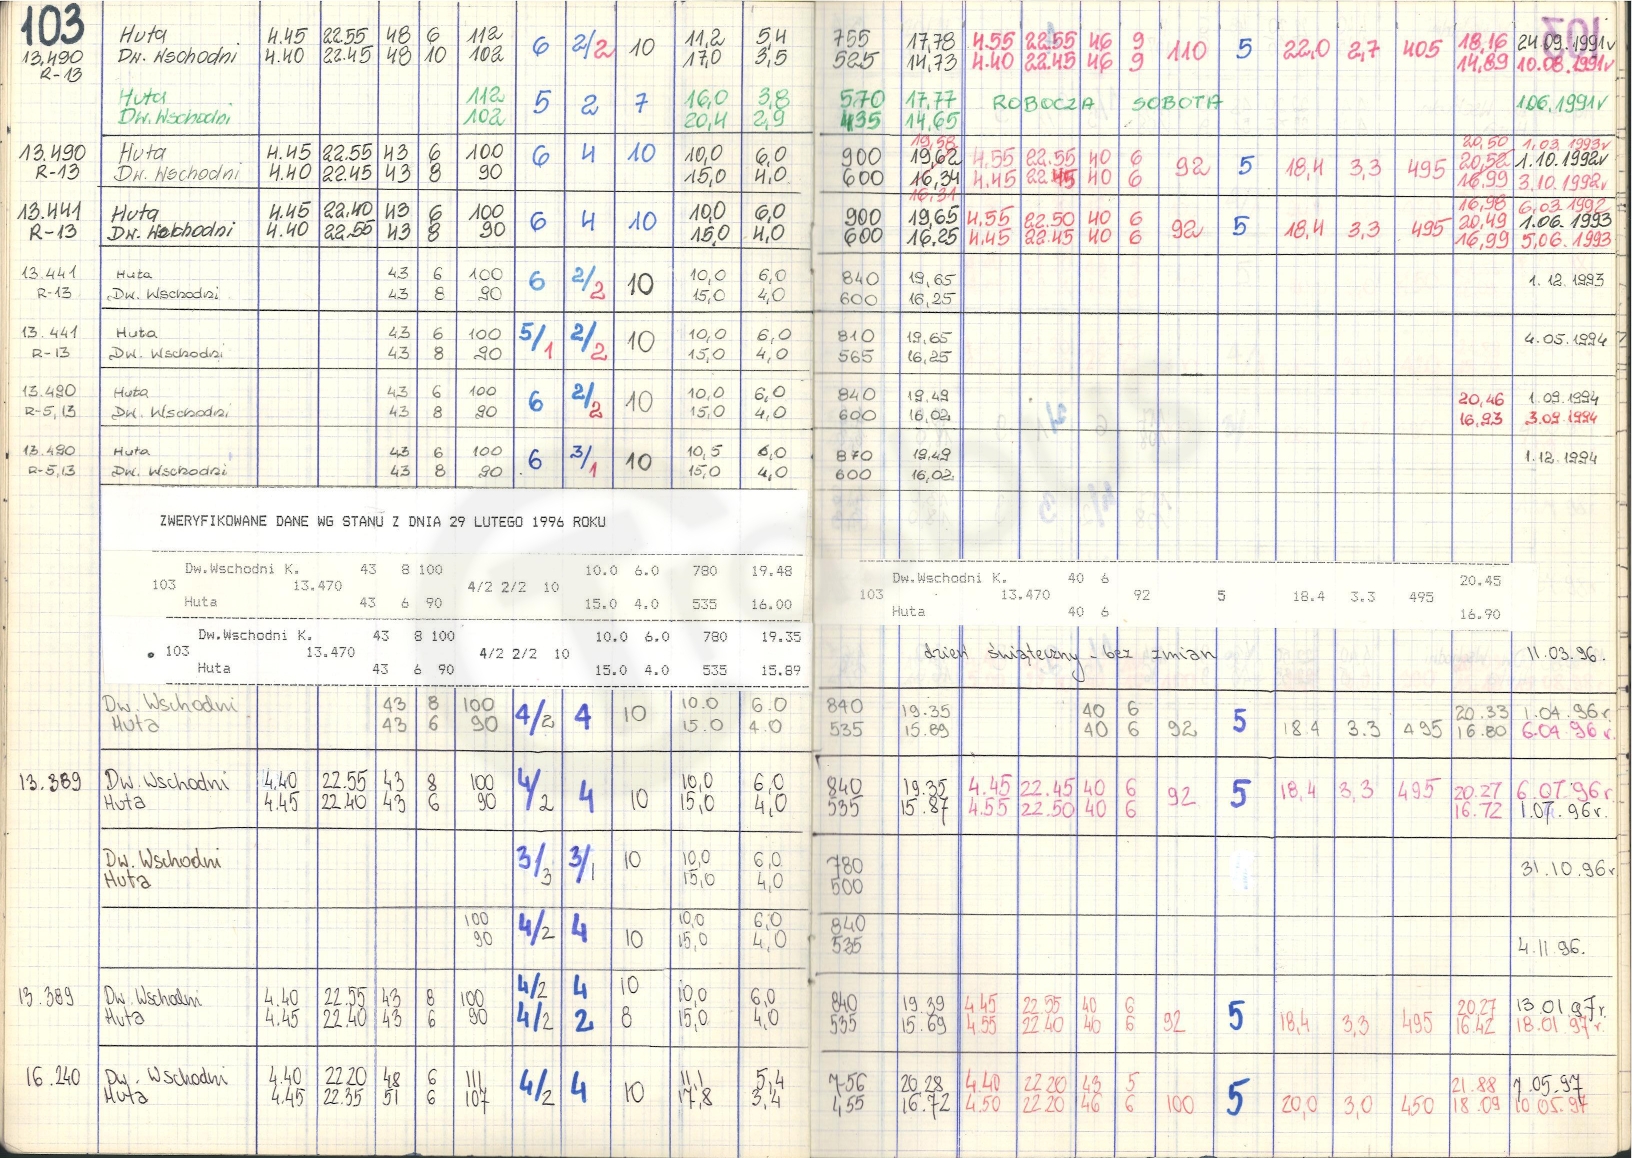 103 Huta 4.45 22.55 48 6 112 6 2/2 10 11,2 5,4 755 17,78 4.55 22.55 46 9 110 5 22,0 2,7 405 18,16 24.09.1991
13,490 Dw. Wschodni 4.40 22.45 48 10 102 17,0 3,5 525 14,73 4.40 22.45 46 9 14,89 10.08.1991
R-13
Huta 112 5 2 7 16,0 3,8 570 17,77 ROBOCZA SOBOTA 1.06.1991
Dw. Wschodni 102 20,4 2,9 435 14,65
19,58 20,50 1.03.1993
13.490 Huta 4.45 22.55 43 6 100 6 4 10 10,0 6,0 900 19,62 4.55 22.55 40 6 92 5 18,4 3,3 495 20,52 1.10.1992
R-13 Dw. Wschodni 4.40 22.45 43 8 90 15,0 4,0 600 16,34 4.45 22.45 40 6 16,99 3.10.1992
16,31 16,98 6.03.1992
13.441 Huta 4.45 22.40 43 6 100 6 4 10 10,0 6,0 900 19,65 4.55 22.50 40 6 92 5 18,4 3,3 495 20,49 1.06.1993
R-13 Dw. Wschodni 4.40 22.55 43 8 90 15,0 4,0 600 16,25 4.45 22.45 40 6 16,99 5.06.1993
13.441 Huta 43 6 100 6 2/2 10 10,0 6,0 840 19,65 1.12.1993
R-13 Dw. Wschodni 43 8 90 15,0 4,0 600 16,25
13.441 Huta 43 6 100 5/1 2/2 10 10,0 6,0 810 19,65 4.05.1994
R-13 Dw. Wschodni 43 8 90 15,0 4,0 565 16,25
13.490 Huta 43 6 100 6 2/2 10 10,0 6,0 840 19.49 20,46 1.09.1994
R-5,13 Dw. Wschodni 43 8 90 15,0 4,0 600 16,02 16,93 3.09.1994
13.490 Huta 43 6 100 6 3/1 10 10,5 6,0 870 19,49 1.12.1994
R-5,13 Dw. Wschodni 43 8 90 15,0 4,0 600 16,02
ZWERYFIKOWANE DANE WG STANU Z DNIA 29 LUTEGO 1996 ROKU
Dw.Wschodni K. 43 8 100 10.0 6.0 780 19.48 Dw.Wschodni K. 40 6 20.45
103 13.470 4/2 2/2 10 103 13.470 92 5 18.4 3.3 495
Huta 43 6 90 15.0 4.0 535 16.00 Huta 40 6 16.90
Dw.Wschodni K. 43 8 100 10.0 6.0 780 19.35
103 13.470 4/2 2/2 10 dzień świąteczny - bez zmian 11.03.96.
Huta 43 6 90 15.0 4.0 535 15.89
Dw. Wschodni 43 8 100 4/2 4 10 10.0 6.0 840 19.35 40 6 92 5 18.4 3.3 495 20.33 1.04.96r.
Huta 43 6 90 15.0 4.0 535 15.89 40 6 16.80 6.04.96r.
13.389 Dw. Wschodni 4.40 22.55 43 8 100 4/2 4 10 10,0 6,0 840 19.35 4.45 22.45 40 6 92 5 18,4 3,3 495 20.27 6.07.96r.
Huta 4.45 22.40 43 6 90 15,0 4,0 535 15.87 4.55 22.50 40 6 16.72 1.07.96r.
Dw. Wschodni 3/3 3/1 10 10,0 6,0 780 31.10.96r
Huta 15,0 4,0 500
100 4/2 4 10 10,0 6,0 840
90 15,0 4,0 535 4.11.96.
4/2 4 10
13.389 Dw. Wschodni 4.40 22.55 43 8 100 10,0 6,0 840 19.39 4.45 22.55 40 6 20,27 13.01.97r.
Huta 4.45 22.40 43 6 90 4/2 2 8 15,0 4,0 535 15.69 4.55 22.40 40 6 92 5 18,4 3,3 495 16.42 18.01.97r.
16.240 Dw. Wschodni 4.40 22.20 48 6 111 4/2 4 10 11,1 5,4 756 20.28 4.40 22.20 43 5 5 21.88 7.05.97
Huta 4.45 22.35 51 6 107 17,8 3,4 455 16.72 4.50 22.20 46 6 100 20,0 3,0 450 18.09 10.05.97